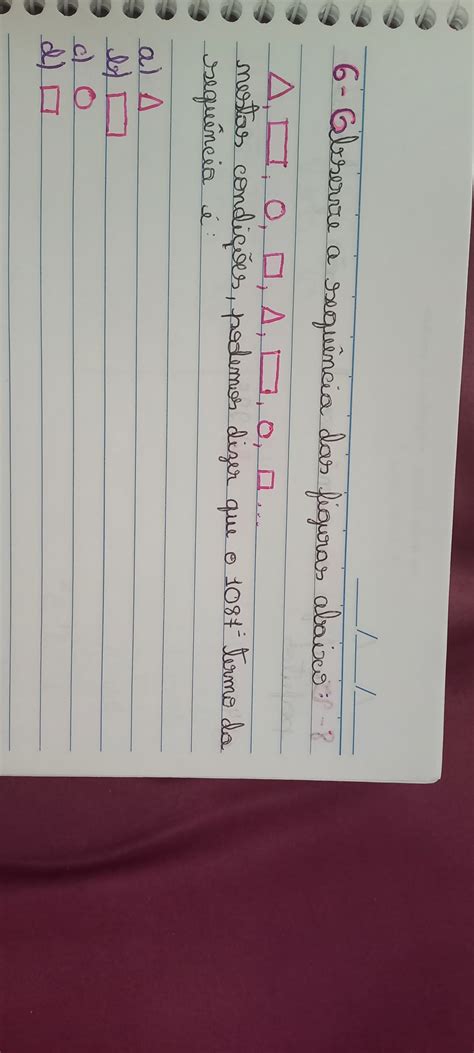 6- Observe a sequência das figuras abaixo:
△, ▭, ○, □, △, ▭, ○, □...
nestas condições, podemos dizer que o 1087º termo da
sequência é:
a) △
b) ▭
c) ○
d) □